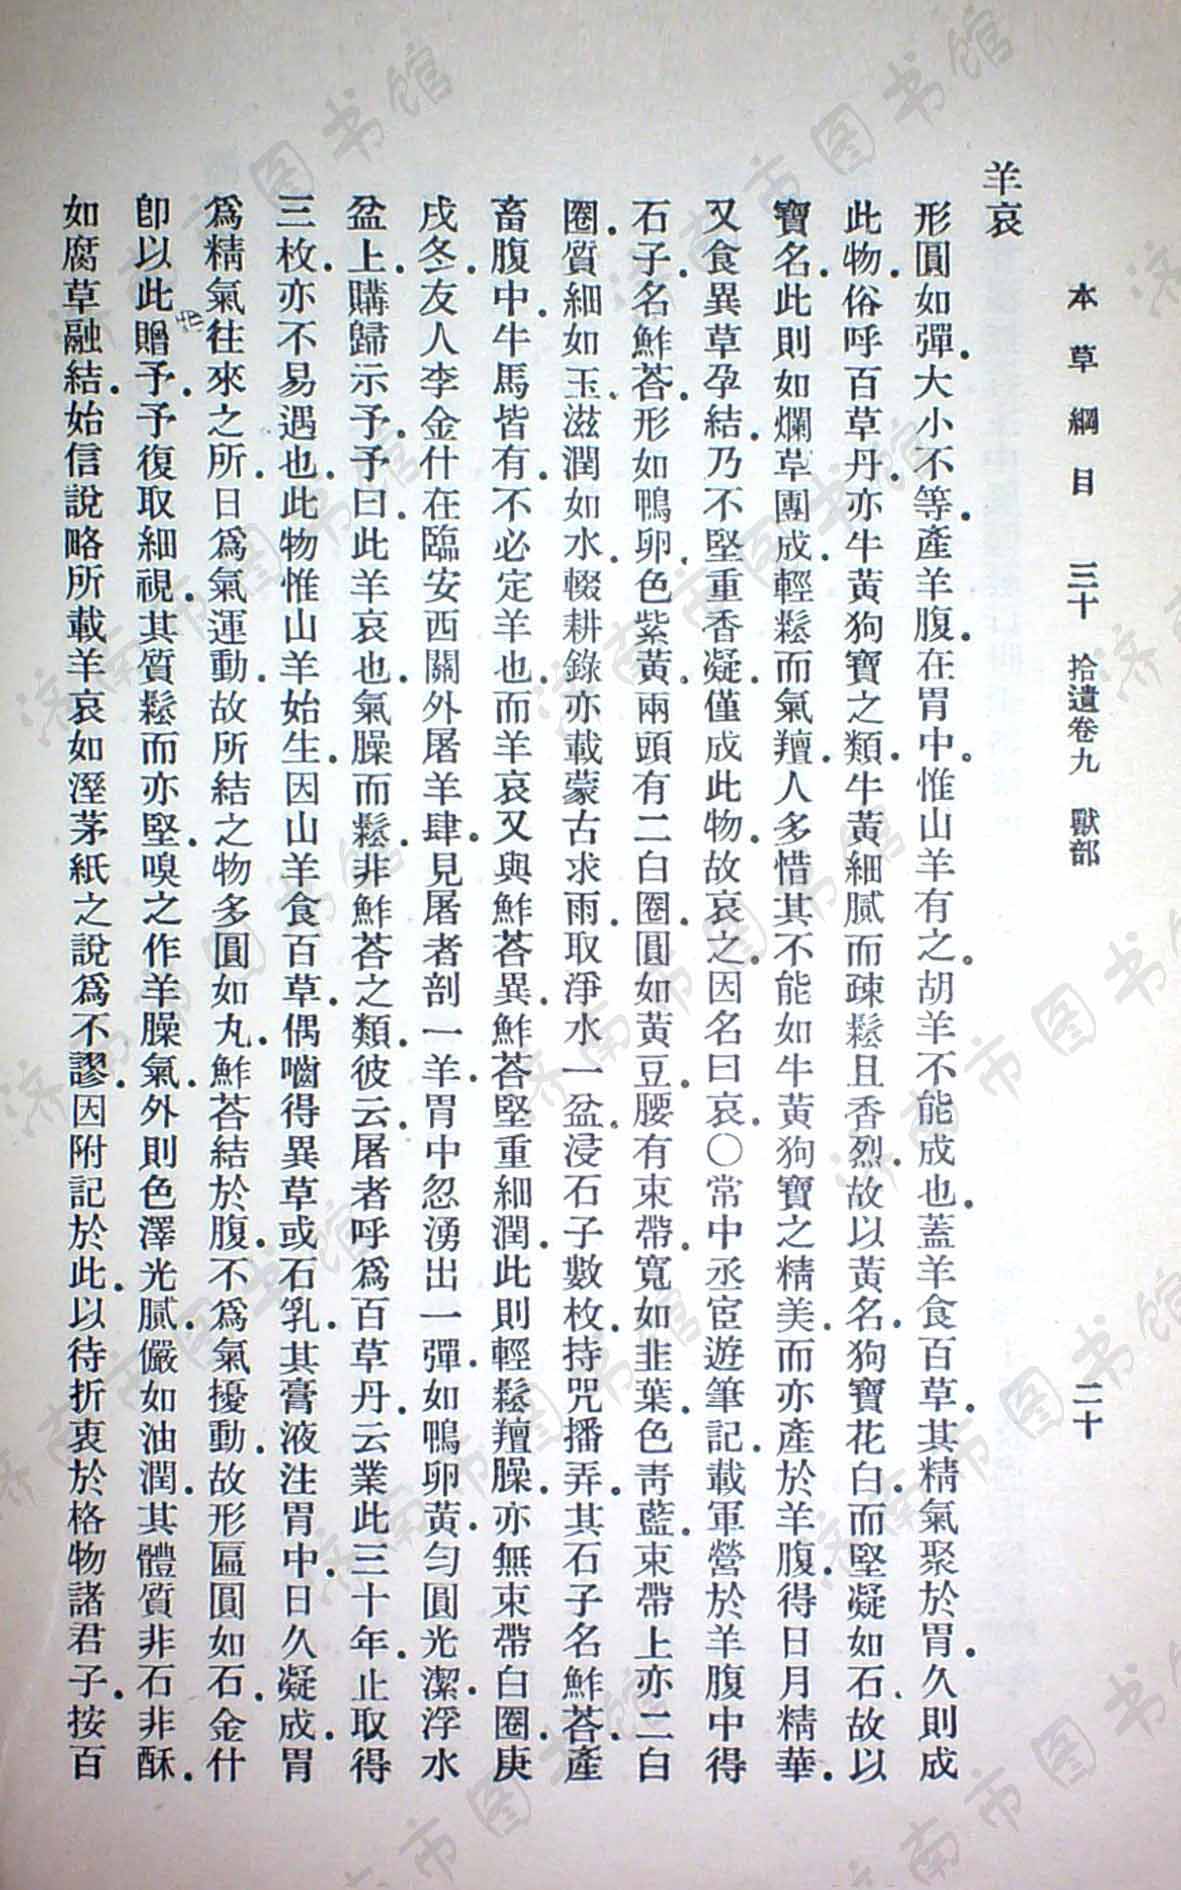 本草綱目 三十 拾遺卷九 獸部 二十
羊哀
形圓如彈.大小不等.產羊腹.在胃中。惟山羊有之。胡羊不能成也.蓋羊食百草.其精氣聚於胃.久則成
此物.俗呼百草丹.亦牛黃狗寶之類.牛黃細膩而疎鬆且香烈.故以黃名.狗寶花白.而堅凝如石.故以
寶名.此則如爛草團成.輕鬆而氣羶.人多惜其不能如牛黃狗寶之精美.而亦產於羊腹.得日月精華.
又食異草孕結.乃不堅重香凝.僅成此物.故哀之.因名曰哀.〇常中丞宦遊筆記.載軍營於羊腹中得
石子.名鮓荅.形如鴨卵.色紫黃.兩頭有二白圈.圓如黃豆.腰有束帶.寬如韭葉.色靑藍.束帶上亦二白
圈.質細如玉.滋潤如水.輟耕錄亦載蒙古求雨.取淨水一盆.浸石子數枚.持咒播弄.其石子名鮓荅.產
畜腹中.牛馬皆有.不必定羊也.而羊哀又與鮓荅異.鮓荅堅重細潤.此則輕鬆羶臊.亦無束帶白圈.庚
戌冬.友人李金什在臨安西關外屠羊肆.見屠者剖一羊.胃中忽湧出一彈.如鴨卵黃.勻圓光潔.浮水
盆上.購歸示予.予曰.此羊哀也.氣臊而鬆.非鮓荅之類.彼云.屠者呼爲百草丹.云業此三十年.止取得
三枚.亦不易遇也.此物惟山羊始生.因山羊食百草.偶嚙得異草或石乳.其膏液注胃中.日久凝成.胃
爲精氣往來之所.日爲氣運動.故所結之物多圓如丸.鮓荅結於腹.不爲氣擾動.故形匾圓如石.金什
卽以此贈予.予復取細視.其質鬆而亦堅.嗅之作羊臊氣.外則色澤光膩.儼如油潤.其體質非石非酥.
如腐草融結.始信說略所載羊哀如溼茅紙之說爲不謬.因附記於此.以待折衷於格物諸君子.按百
济南市图书馆